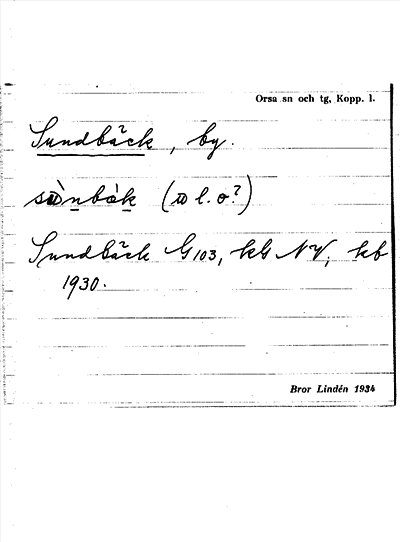 Orsa sn och tg, Kopp. l.
Sundbäck, by.
(l. o?)
Sundbäck G103, kbl NV, kb
1930.
Bror Lindén 1934